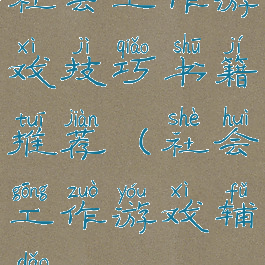 社会工作游
xì jì qiǎo shū jí
戏技巧书籍
tuī jiàn shè huì
推荐（社会
gōng zuò yóu xì fǔ
工作游戏辅
dǎo